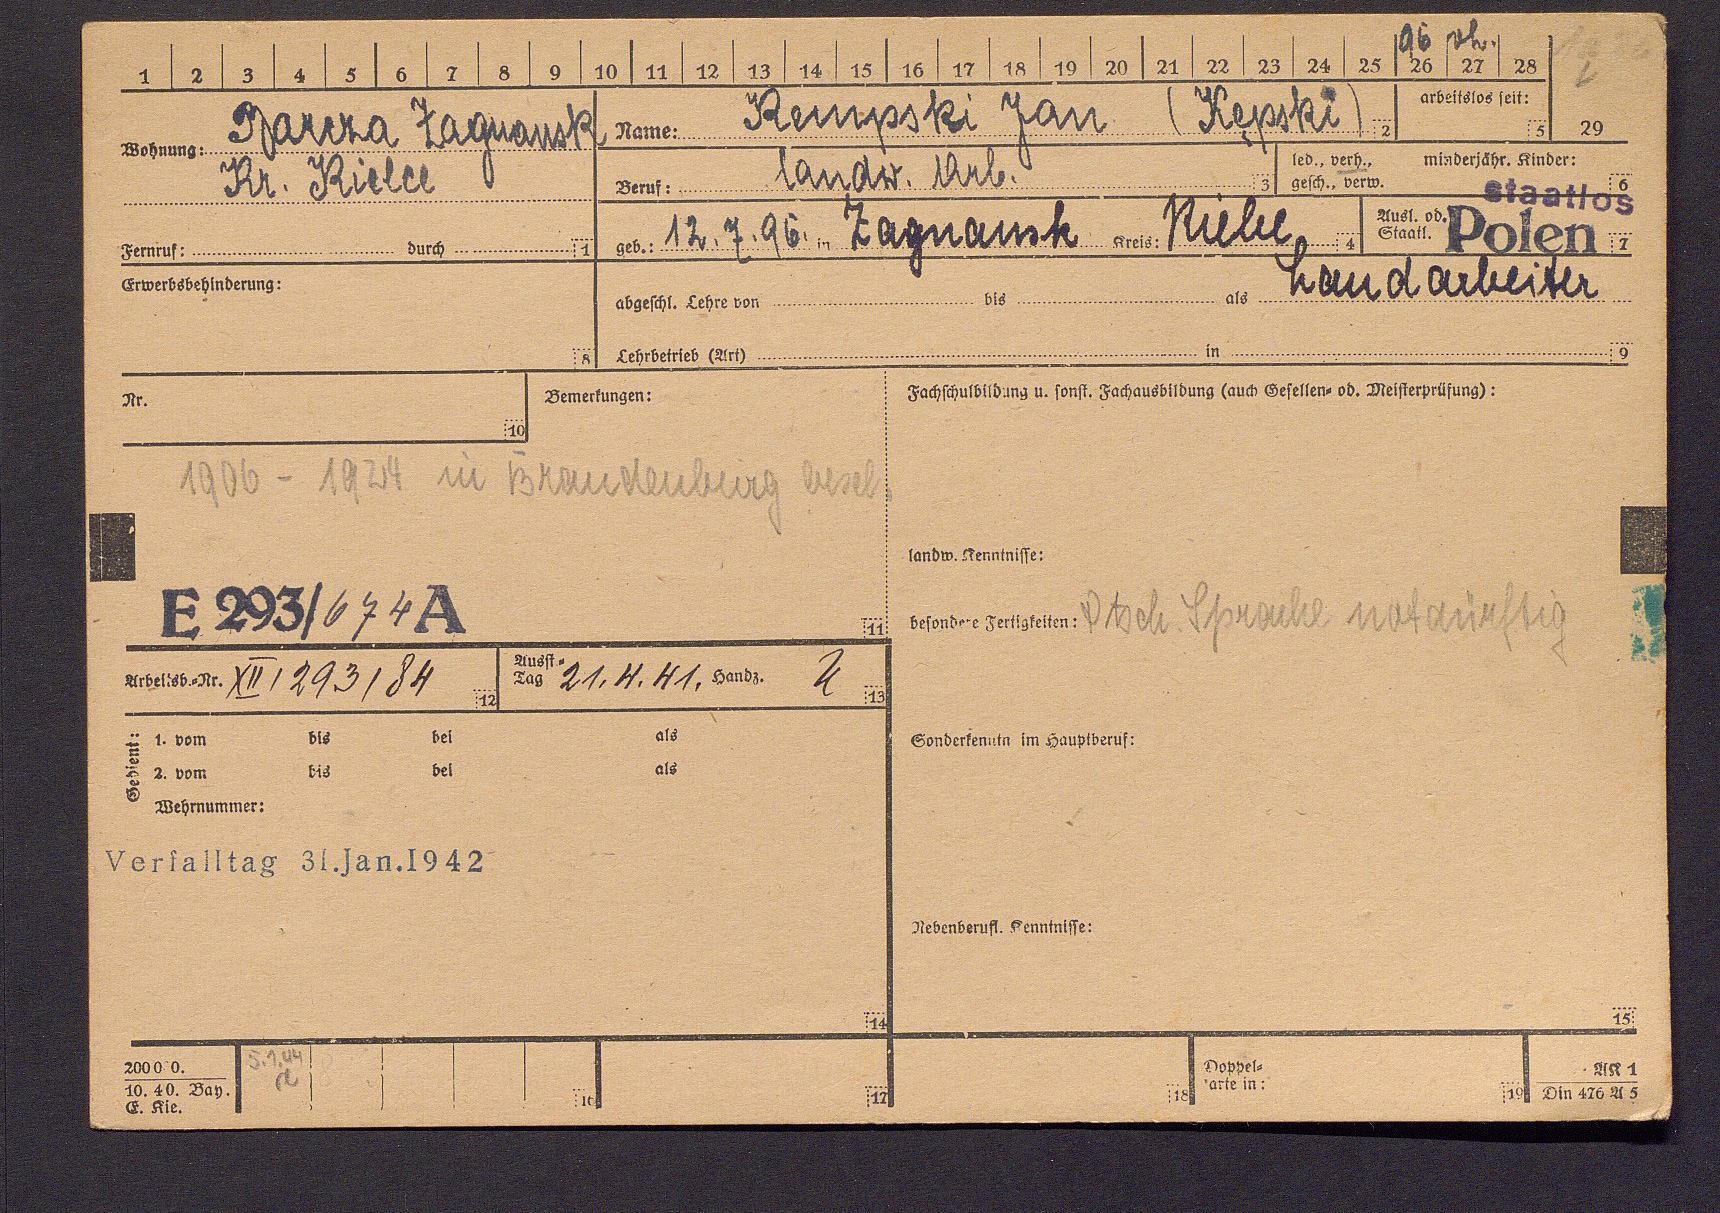 96 vh.
1 2 3 4 5 6 7 8 9 10 11 12 13 14 15 16 17 18 19 20 21 22 23 24 25 26 27 28 29
Wohnung: Barcza Zagnansk
Kr. Kielce
Fernruf: durch 1
Name: Kempski Jan (Kępski) 2
arbeitslos seit: 5
Beruf: landw. Arb. 3
led., verh., gesch., verw.
minderjähr. Kinder: 6
geb.: 12.7.96. in Zagnansk Kreis: Kielce 4
Ausl. od. Staatl. staatlos Polen 7
Erwerbsbehinderung: 8
abgeschl. Lehre von bis als Landarbeiter
Lehrbetrieb (Art) in 9
Nr. 10
Bemerkungen:
1906 - 1924 in Brandenburg
E 293/674 A
11
Arbeitsb.-Nr. XII/293/84 12
Ausst.-Tag 21.4.41. Handz. 13
Gedient:
1. vom bis bei als
2. vom bis bei als
Wehrnummer:
Verfalltag 31.Jan.1942
14
Fachschulbildung u. sonst. Fachausbildung (auch Gesellen- od. Meisterprüfung):
landw. Kenntnisse:
besondere Fertigkeiten: Dtsch. Sprache notdürftig
Sonderkenntn im Hauptberuf:
Nebenberufl. Kenntnisse:
15
20000 0.
10. 40. Bay.
E. Kie.
5.1.44
16
17
18
Doppel-
karte in: 19
AK 1
Din 476 A 5